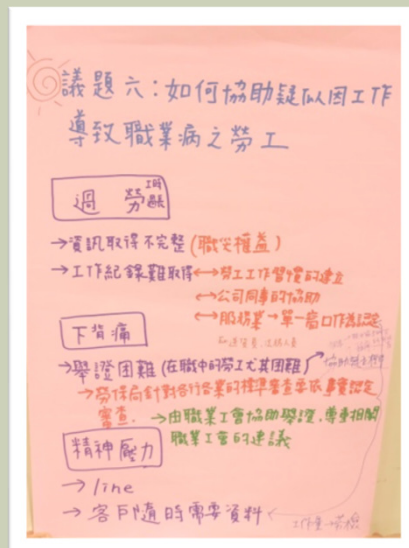 議題六：如何協助疑似因工作
導致職業病之勞工
過勞
→資訊取得不完整(職災權益)
→工作紀錄難取得←→勞工工作習慣的建立
←→公司同事的協助
←→服務業→單一窗口作為認定
下背痛
→舉證困難(在職中的勞工尤其困難)
→勞保局針對各行各業的標準審查要依事實認定
審查. →由職業工會協助舉證,尊重相關
職業工會的建議
精神壓力
→line
→客戶隨時需要資料